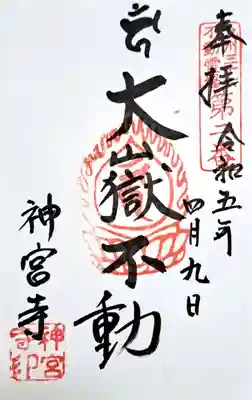 奉拝
令和五年
四月九日
大嶽不動
神宮寺
神宮
寺印